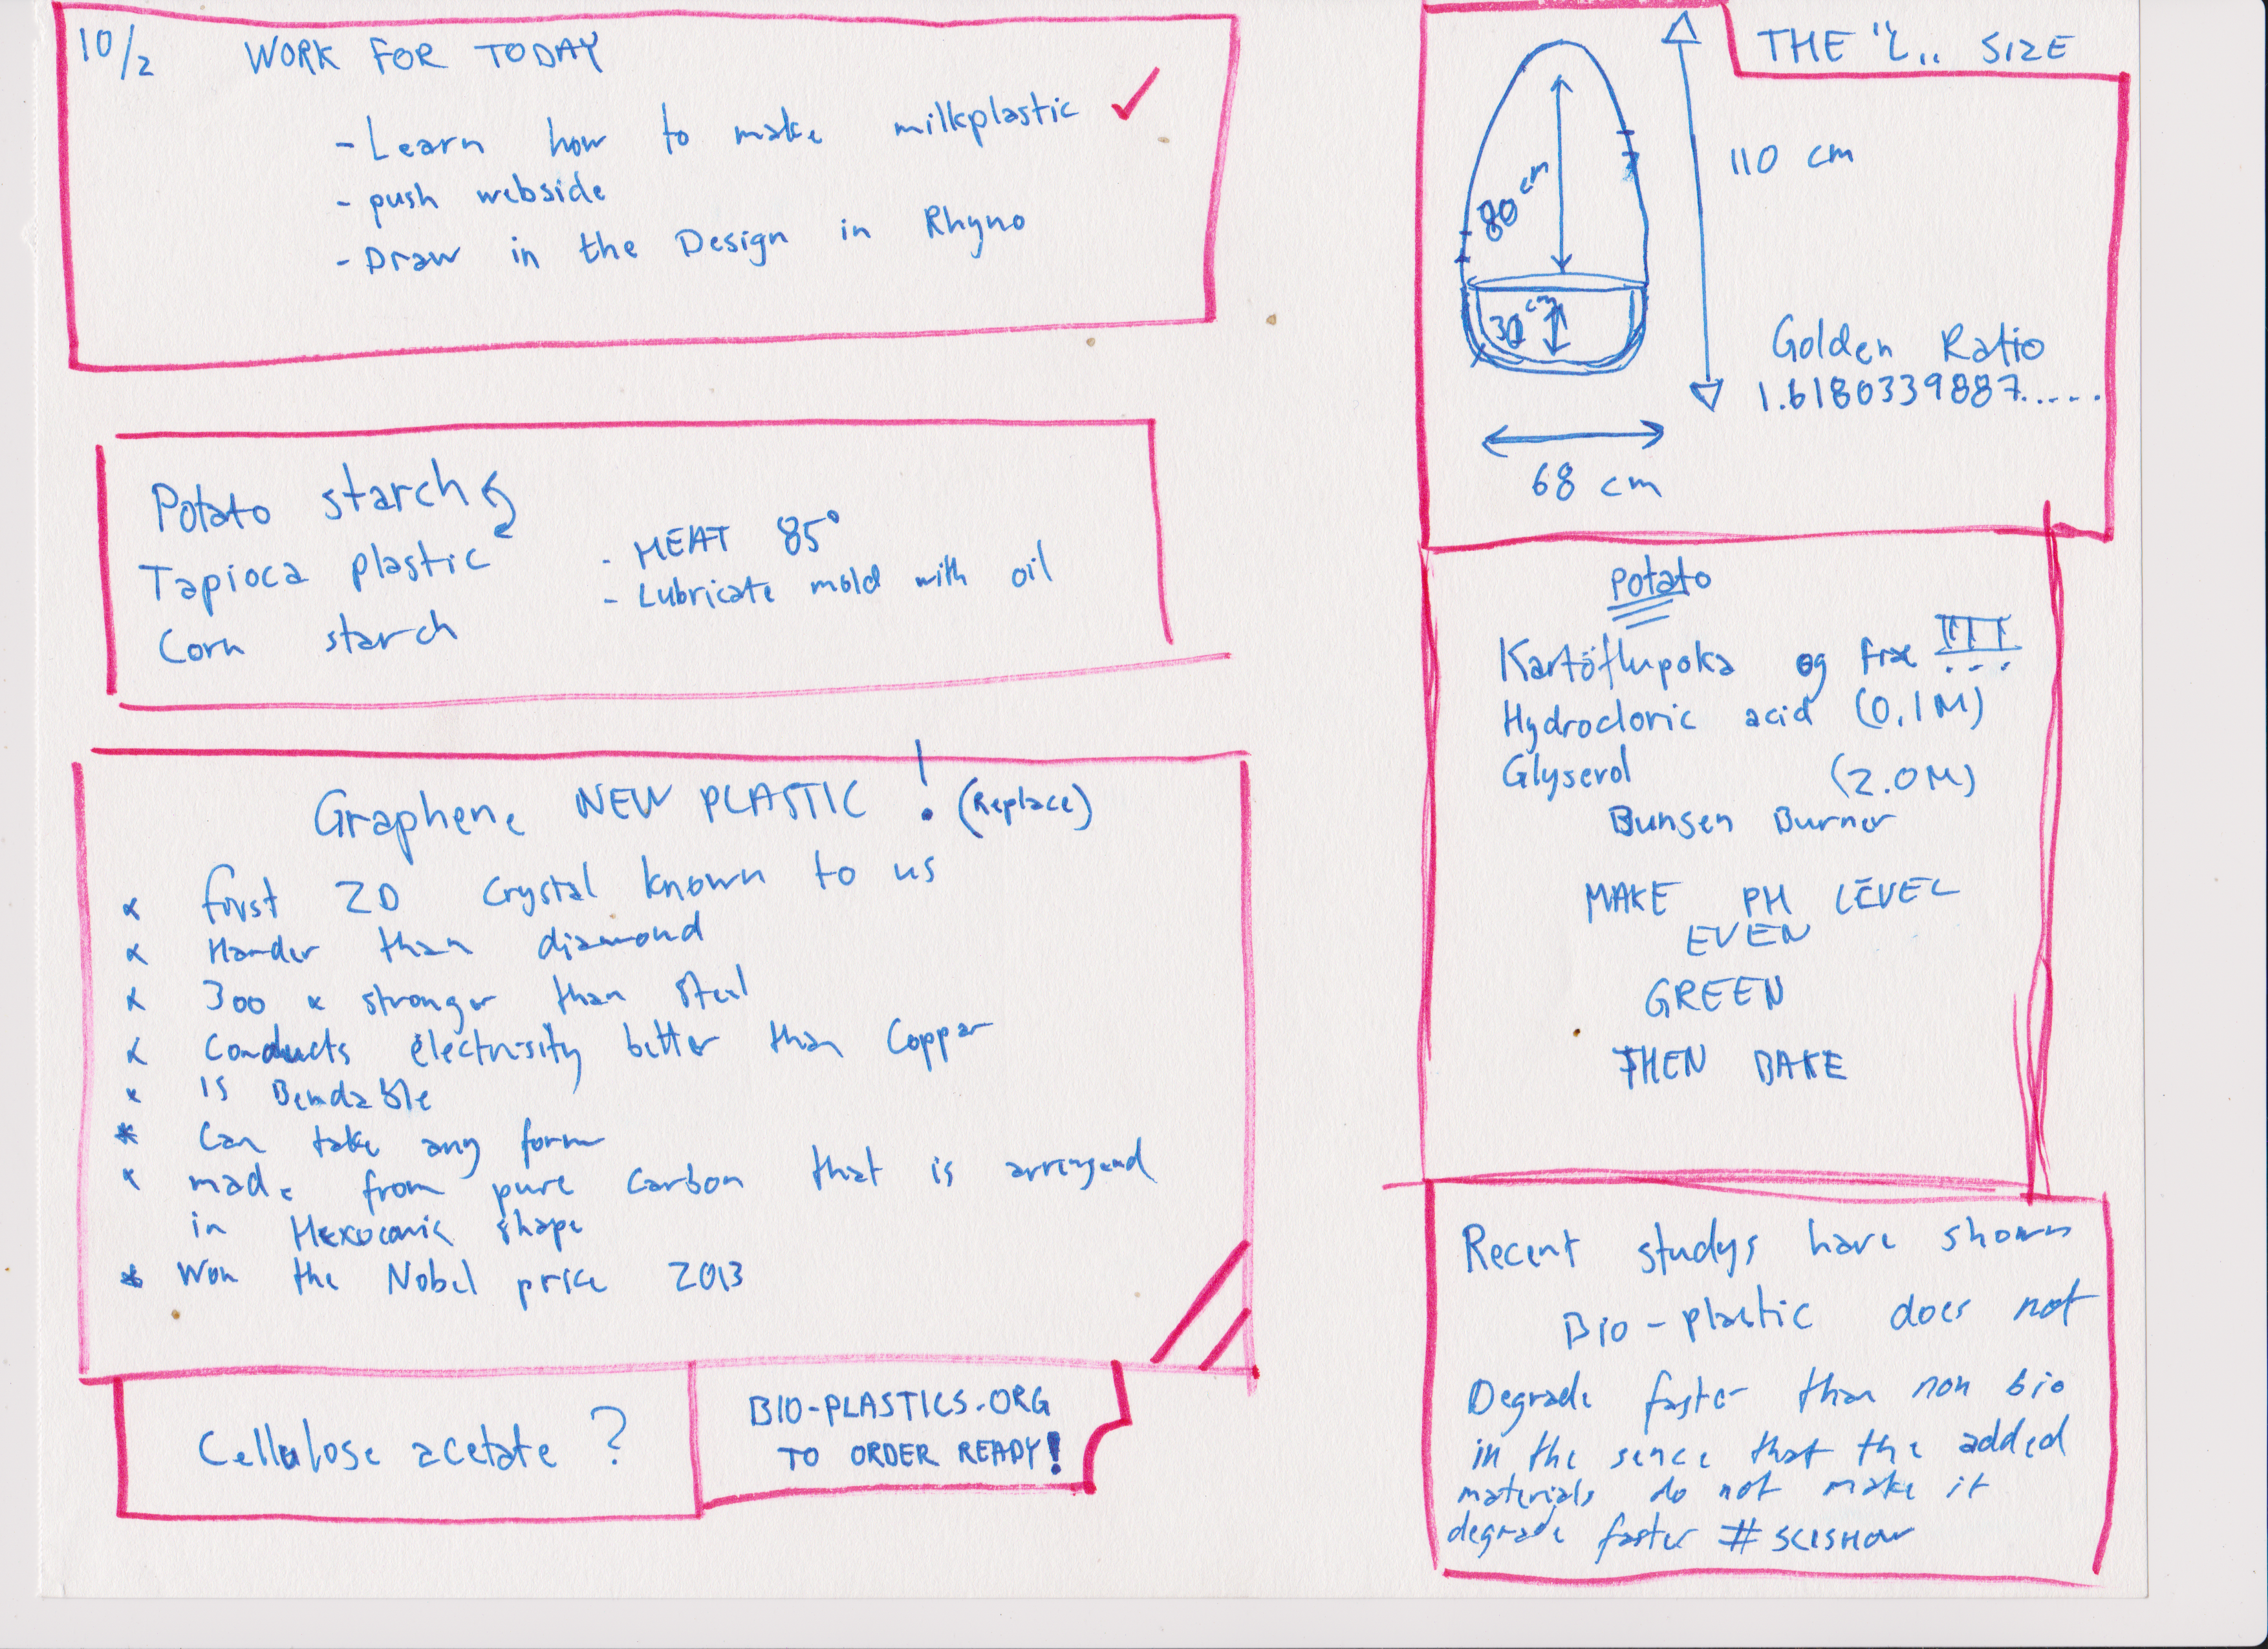 10/2 WORK FOR TODAY
- Learn how to make milkplastic ✓
- push webside
- Draw in the Design in Rhyno
Potato starch
Tapioca plastic
Corn starch
- HEAT 85°
- Lubricate mold with oil
Graphene NEW PLASTIC ! (Replace)
× first 2D crystal known to us
× Harder than diamond
× 300 x stronger than steel
× Conducts electrisity better than Copper
× is Bendable
* Can take any form
× made from pure carbon that is
in shape
* Won the Nobel price 2013
Cellulose acetate ?
BIO-PLASTICS.ORG
TO ORDER READY!
THE SIZE
80 cm
30 cm
110 cm
Golden Ratio
1.6180339887.....
68 cm
Potato
Kartöflupoka og
Hydrocloric acid (0.1M)
Glyserol (2.0M)
Bunsen Burner
MAKE PH LEVEL
EVEN
GREEN
THEN BAKE
Recent studys have shown
Bio-plastic does not
Degrade faster than non bio
in the sence that the added
materials do not make it
degrade faster # SCISHOW